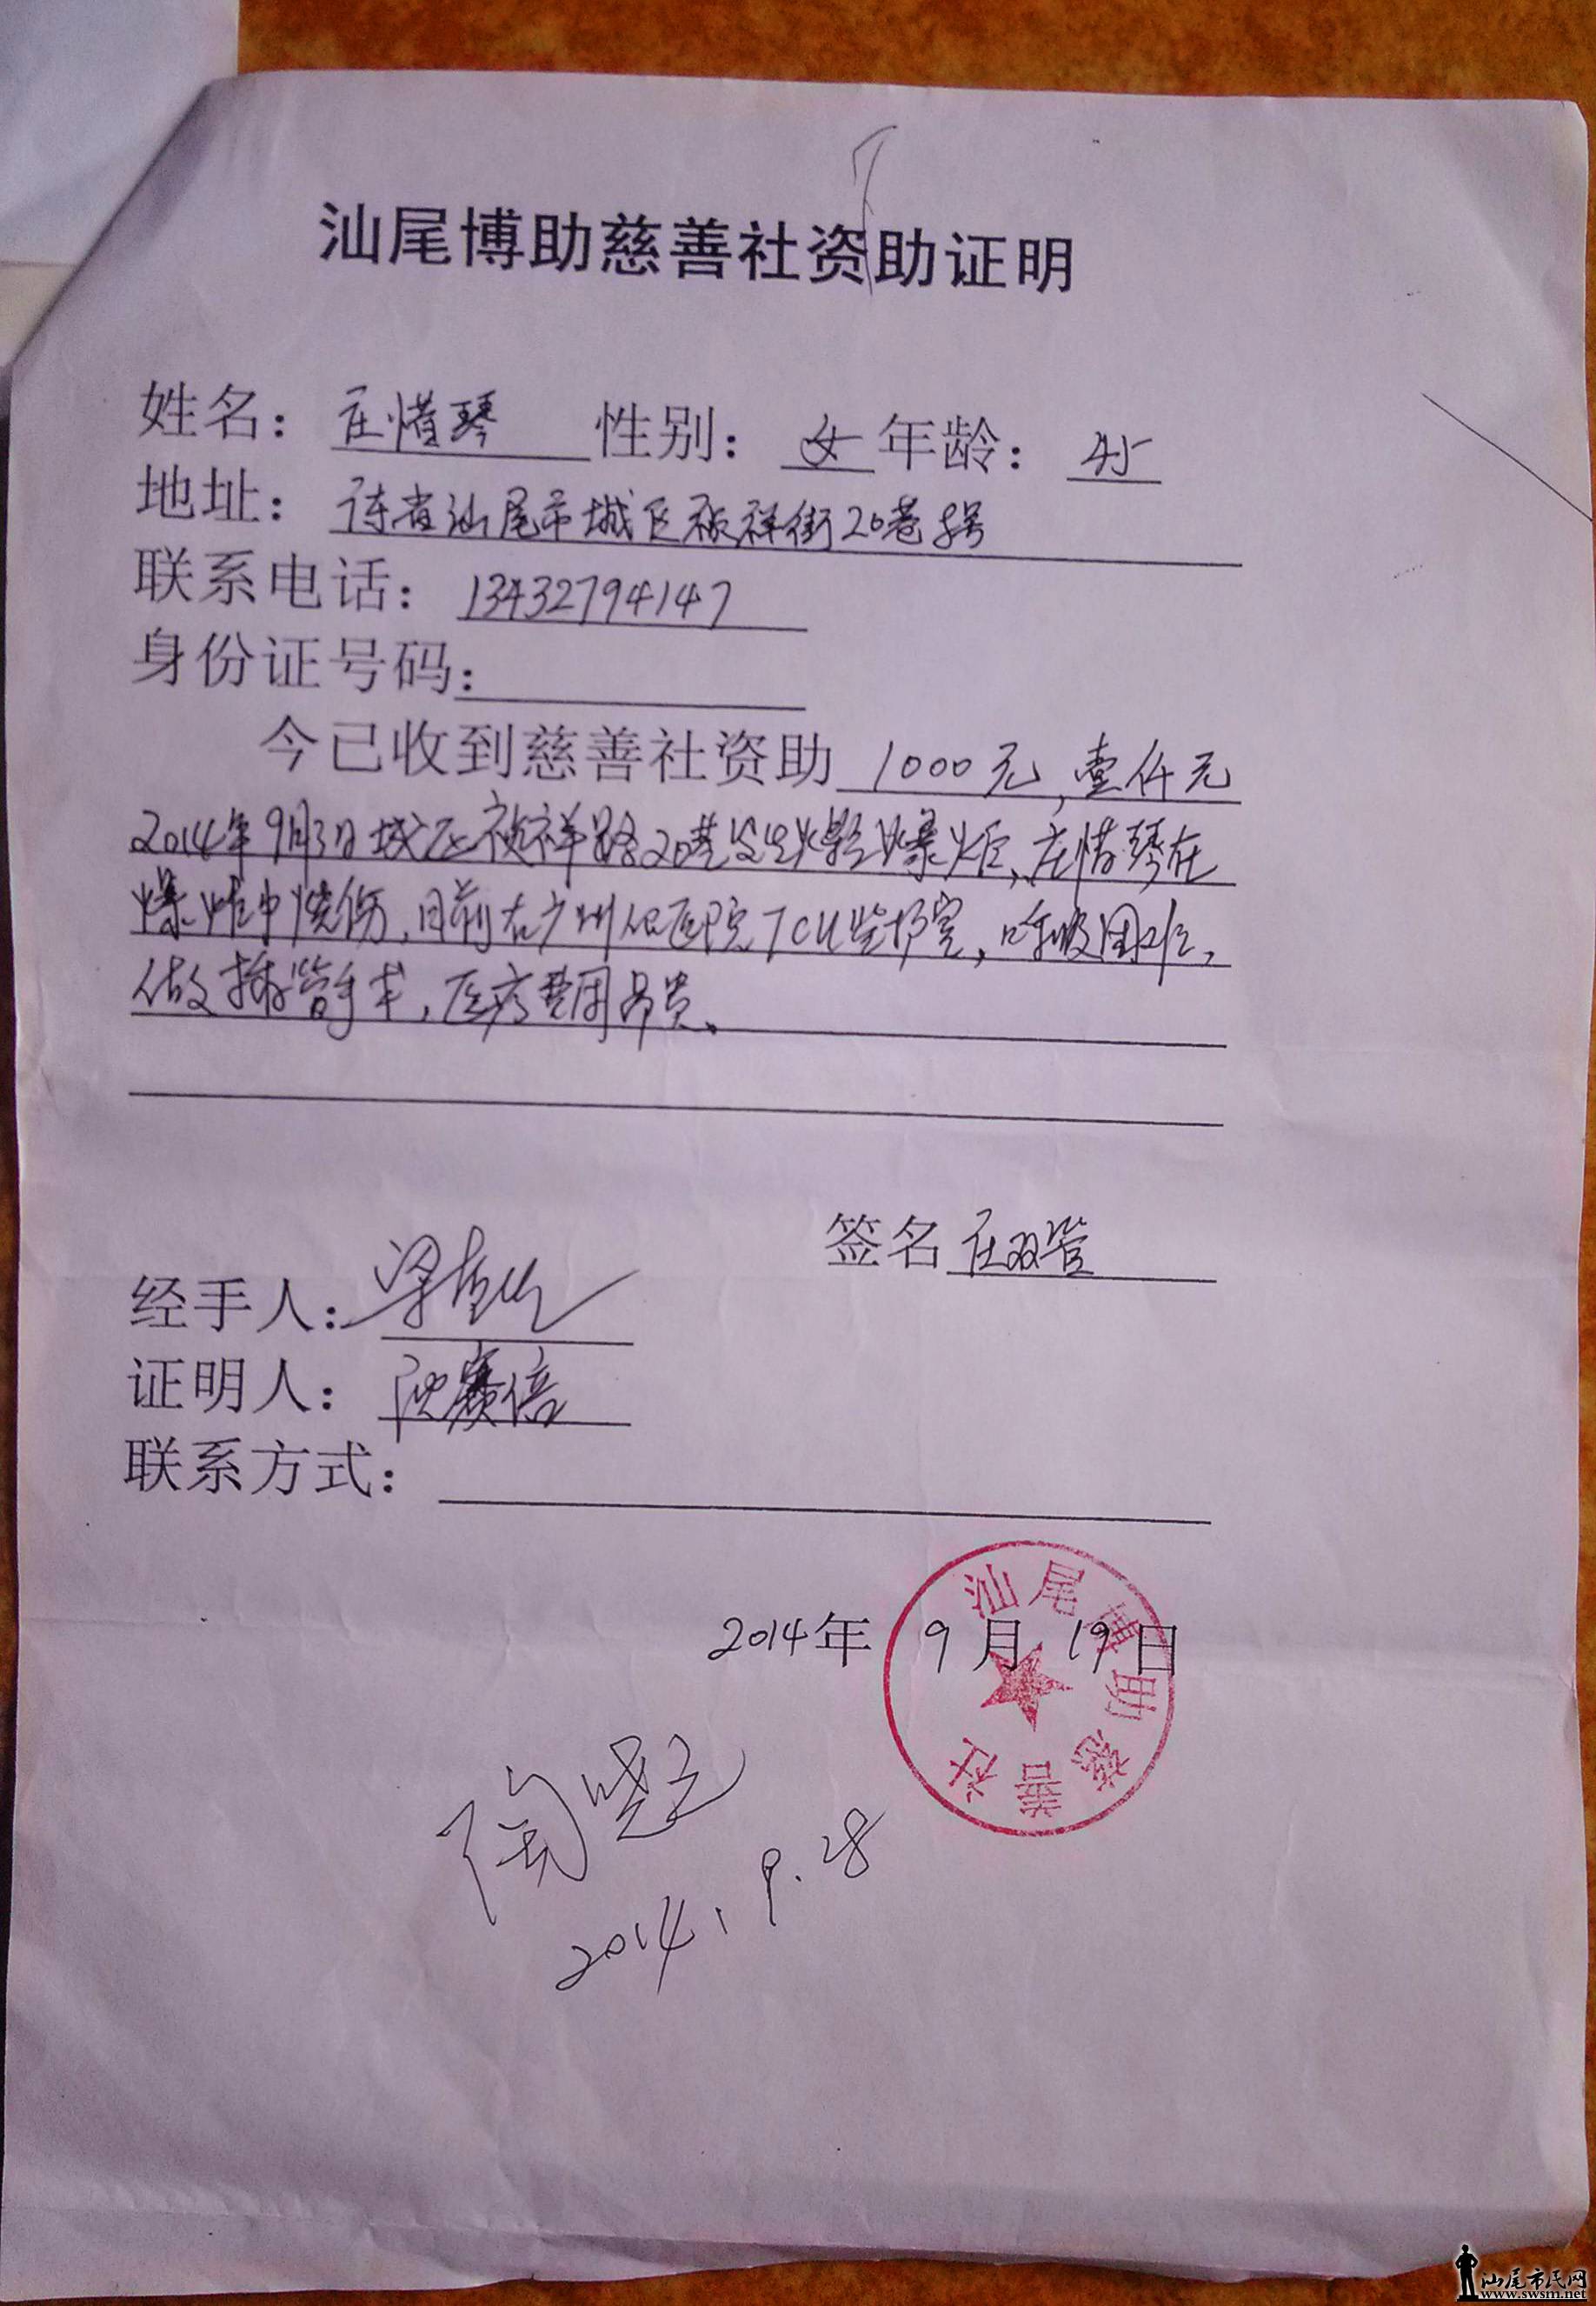 汕尾博助慈善社资助证明
姓名：庄惜琴 性别：女 年龄：45
地址：广东省汕尾市城区祯祥街20巷5号
联系电话：13432794147
身份证号码：
今已收到慈善社资助 1000元，壹仟元
2014年9月3日城区祯祥路20巷发生火影爆炸，庄惜琴在
爆炸中烧伤，目前在广州 医院ICU监护室，呼吸困难，
做插管手术，医疗费用昂贵。
签名 庄双管
经手人：梁
证明人：陈赛倍
联系方式：
2014年 9月 19日
汕尾博助慈善社
陶
2014.9.28
汕尾市民网
www.swsm.net